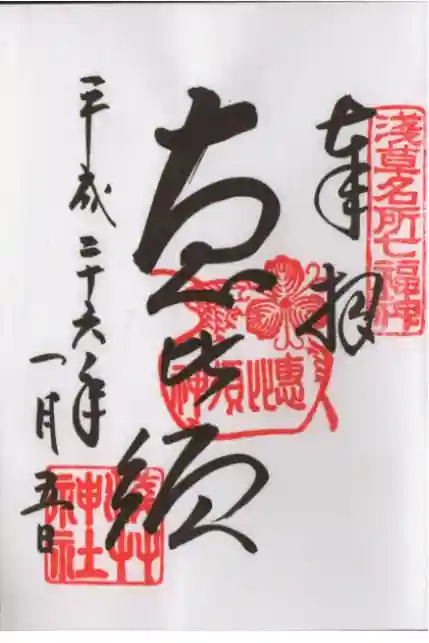 淺草名所七福神
奉拝
恵比須
惠比須神
平成二十六年
一月五日
淺草神社